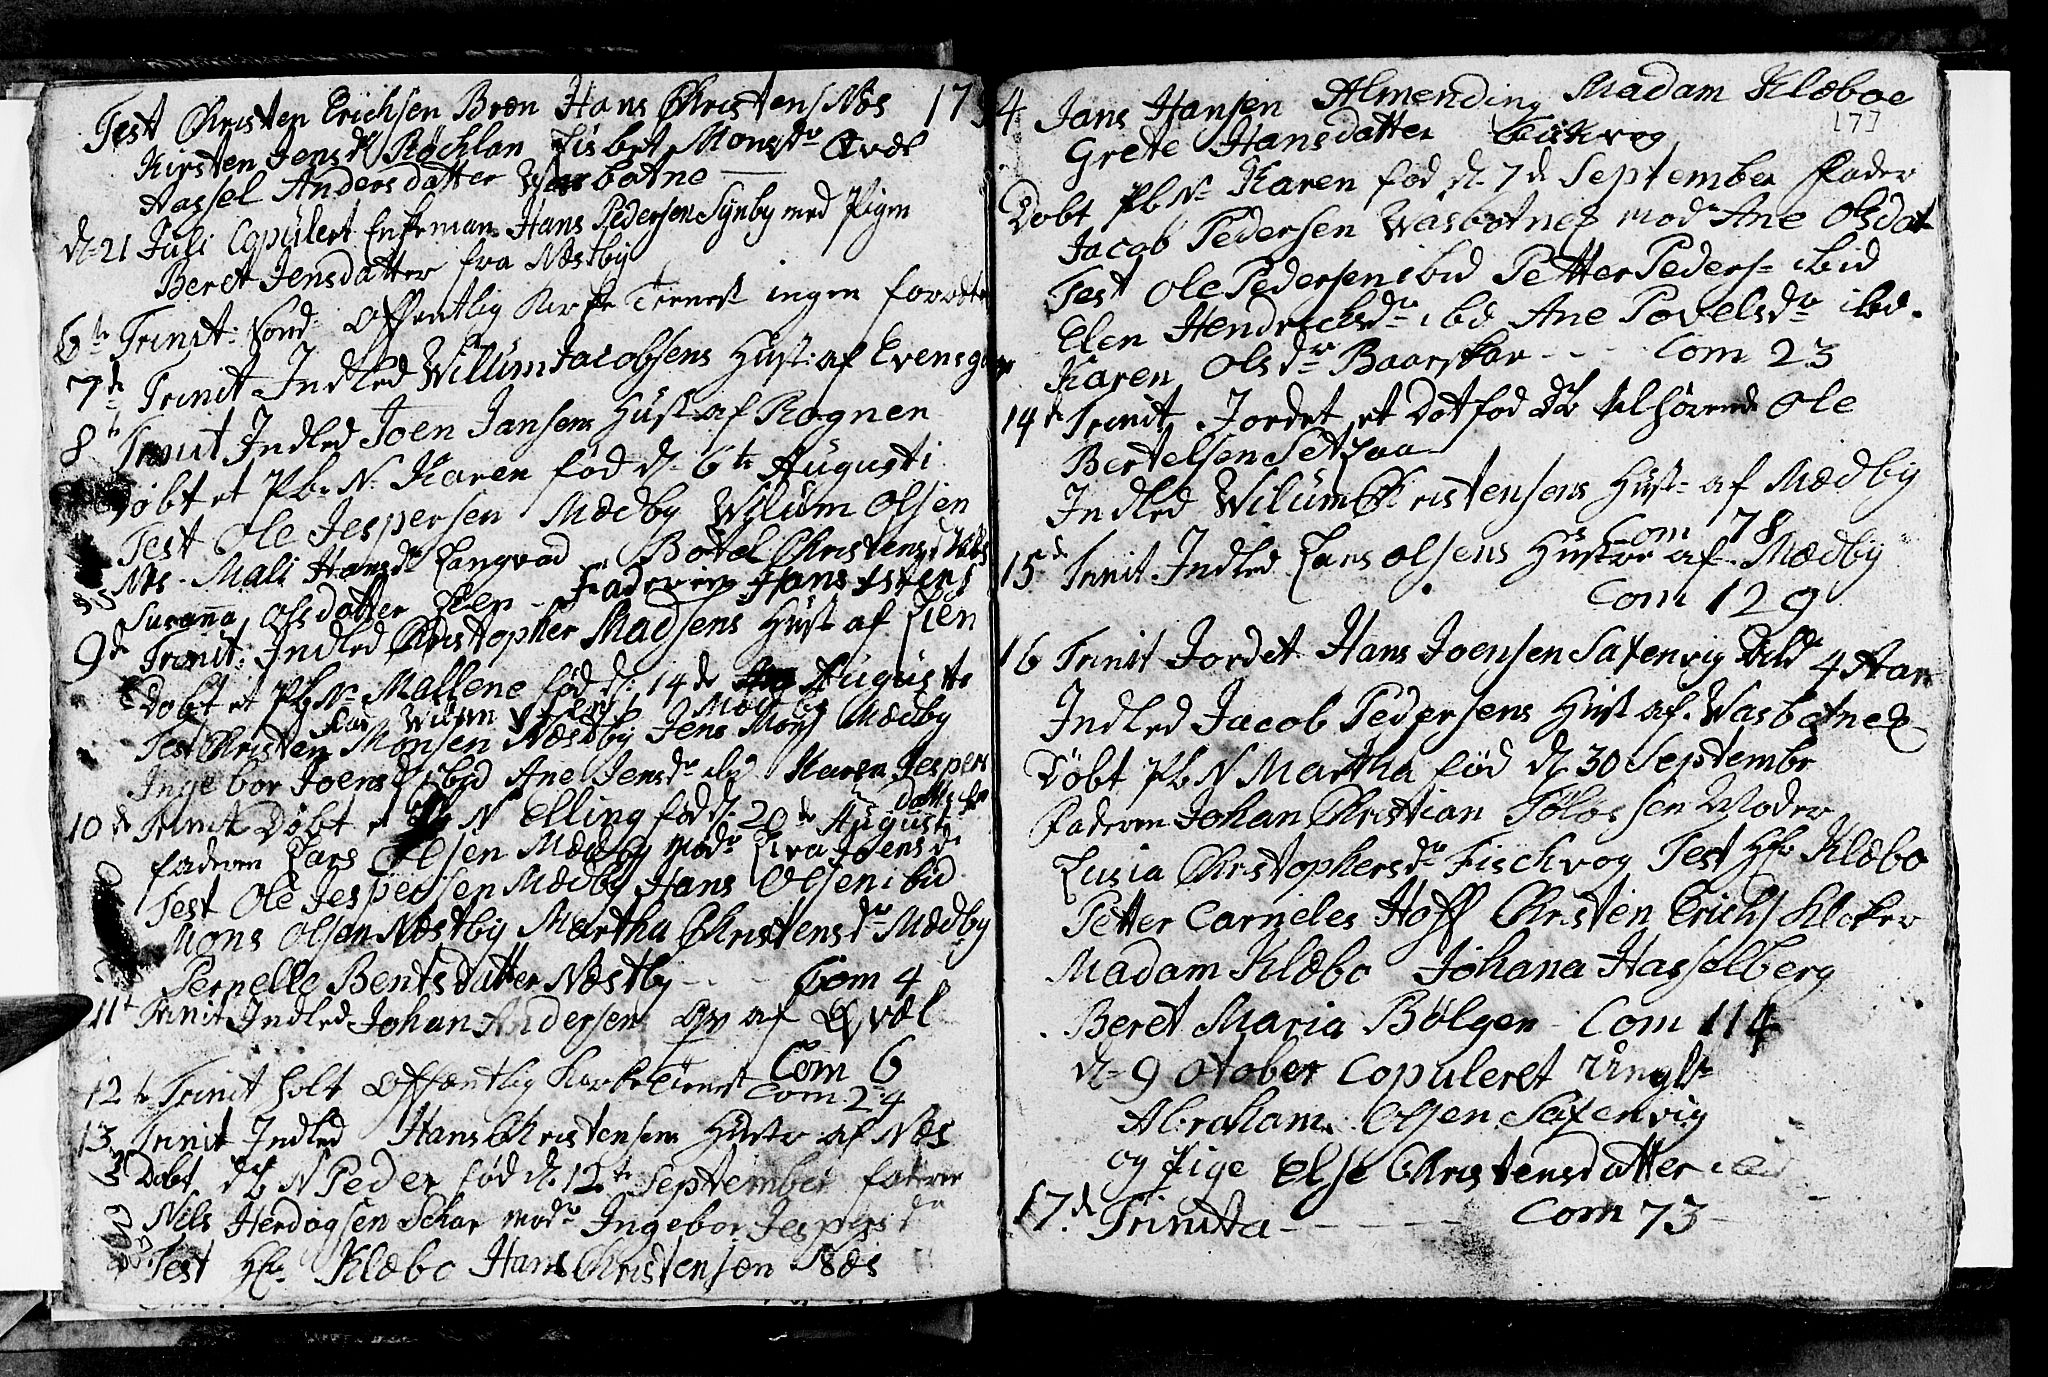 Test Christen Erichsen Bron Hans Christens Næs 17
Kirsten Jens dr Röchlan Lisbet Mons dr Qvæl
Hassel Andersdatter Wasbotne
d. 21 Juli Copulert Enkeman Hans Pedersen Synby med Pigen
Beret Jensdatter fra Næstby
6te Trinit: Sønd: Offentlig Kirke Tieneste ingen
7de Trinit Indled Willum Jacobsens Hust: af Evensgaar
8t Trinit Indled Joen Jansens Hust af Rognen
Døbt et Pb. N. Karen fød d. 6te Augusti
Test Ole Jespersen Mædby Wilum Olsen
Næs - Mali Hansdr Langvad Botel Christensd Næs
Susanna Olsdatter Lien - Faderen Hans
9de Trinit: Indled Christopher Madsens Hust af Lien
Døbt et Pb N. Mallene fød d: 14de Augusti
Far Wilum Mædby
Test Christen Monsen Næstby Jens Mons Mædby
Ingebor Joensdr ibid Ane Jensdr ibd Karen Jespers
datter
10de Trinit Døbt et N Elling fød d. 20de August
faderen Lars Olsen Mædby modr Joensdr
Test Ole Jespersen Mædby Hans Olsen ibid
Mons Olsen Næstby Martha Christensdr Mædby
Pernelle Bentsdatter Næstby - - - Com 4
11t Trinit Indled Johan Andersens Qv af Qvæl
Com 6
12te Trinit holt Offentlig Kirketienest Com 24
13 Trinit Indled Hans Christensens Hustr af Næs
Døbt db N Peder fød d. 12te September faderen
Nils Herdogsen Schar modr Ingebor Jespers dr
Test Hr Klæbo Hans Christensen Næs
4 Jans Hansen Almending Madam Klæboe
[7]
Grete Hansdatter
Døbt Pb N Karen fød d. 7de September Fader
Jacob Pedersen Wasbotnes modr Ane Olsdat
Test Ole Pedersen ibid Petter Peders ibid
Elen Hendrichsdr ibd Ane Povelsdr ibd.
Karen Olsdr Baarskar - - - Com 23
14de Trinit. Jordet et Dødfød db tilhørende Ole
Bertelsen Setzaa
Indled Wilum Christensens Hust af Mædby
Com 78
15de Trinit Indled Lars Olsens Hustroe af Mædby
Com 129
16 Trinit Jordet Hans Joensen Saxenvig Old 4 Aar
Indled Jacob Pedersens Hust af Wasbotnes
Døbt Pb N Martha fød d 30 Septembr
Faderen Johan Christian Moder
Lusia Christophersdr Fischvog Test Hr Klæbo
Petter Carneles Hoff Christen Erichs Kloker
Madam Klæbo Johana Hasselberg
Beret Maria Bølgen - Com 114
d. 9 Otober Copuleret
Abraham Olsen Saxenvig
og Pige Else Christensdatter ibid
17.de Trinita - - - - Com 73